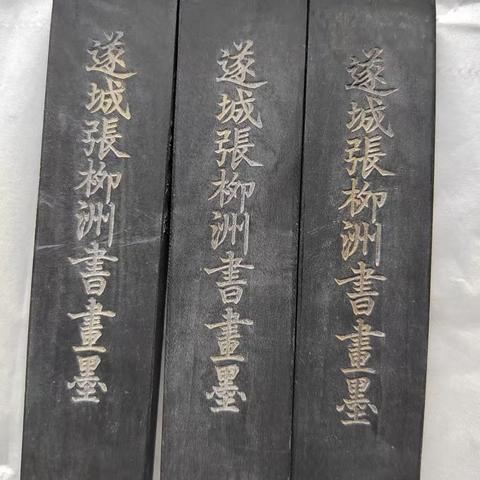 遂城張柳洲書畫墨
遂城張柳洲書畫墨
遂城張柳洲書畫墨